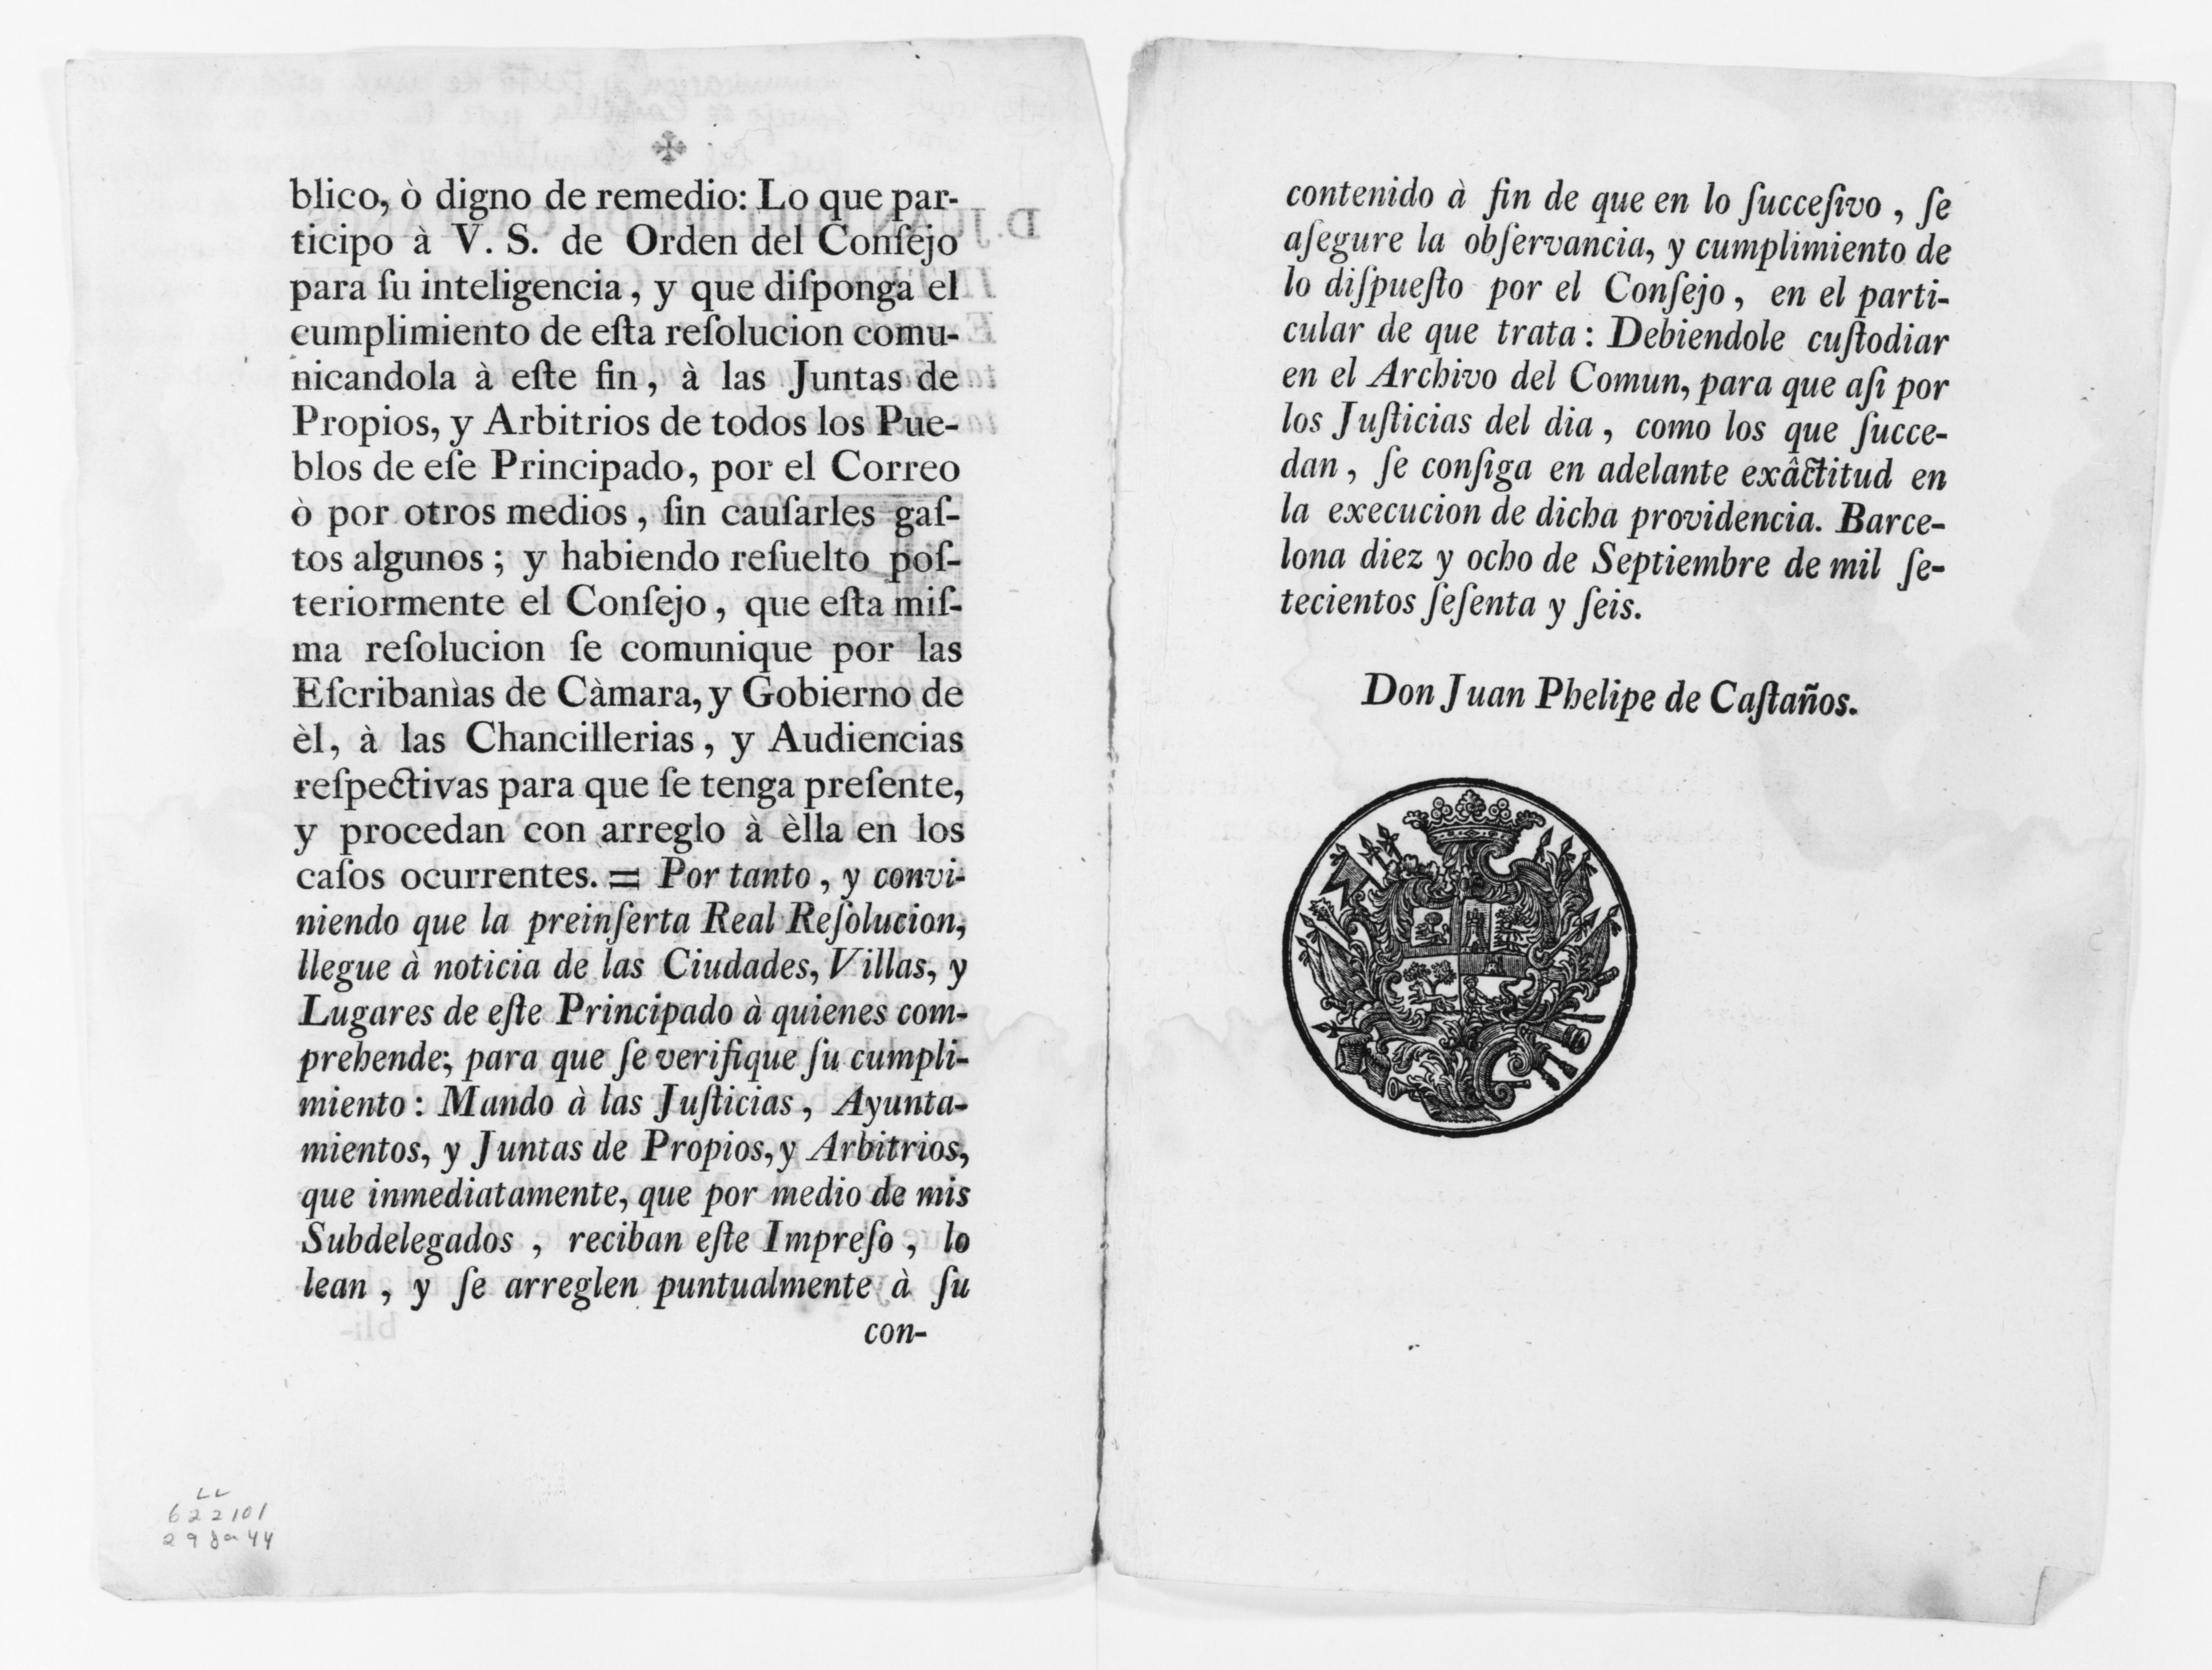 blico, ò digno de remedio: Lo que par-
ticipo à V. S. de Orden del Conſejo
para ſu inteligencia, y que diſponga el
cumplimiento de eſta reſolucion comu-
nicandola à eſte fin, à las Juntas de
Propios, y Arbitrios de todos los Pue-
blos de eſe Principado, por el Correo
ò por otros medios, ſin cauſarles gaſ-
tos algunos; y habiendo reſuelto poſ-
teriormente el Conſejo, que eſta miſ-
ma reſolucion ſe comunique por las
Eſcribanìas de Càmara, y Gobierno de
èl, à las Chancillerias, y Audiencias
reſpectivas para que ſe tenga preſente,
y procedan con arreglo à èlla en los
caſos ocurrentes. = Por tanto, y convi-
niendo que la preinſerta Real Reſolucion,
llegue à noticia de las Ciudades, Villas, y
Lugares de eſte Principado à quienes com-
prehende; para que ſe verifique ſu cumpli-
miento: Mando à las Juſticias, Ayunta-
mientos, y Juntas de Propios, y Arbitrios,
que inmediatamente, que por medio de mis
Subdelegados, reciban eſte Impreſo, lo
lean, y ſe arreglen puntualmente à ſu
con-
LL
622101
29 44
contenido à fin de que en lo ſucceſivo, ſe
aſegure la obſervancia, y cumplimiento de
lo diſpueſto por el Conſejo, en el parti-
cular de que trata: Debiendole cuſtodiar
en el Archivo del Comun, para que aſi por
los Juſticias del dia, como los que ſucce-
dan, ſe conſiga en adelante exâctitud en
la execucion de dicha providencia. Barce-
lona diez y ocho de Septiembre de mil ſe-
tecientos ſeſenta y ſeis.
Don Juan Phelipe de Caſtaños.